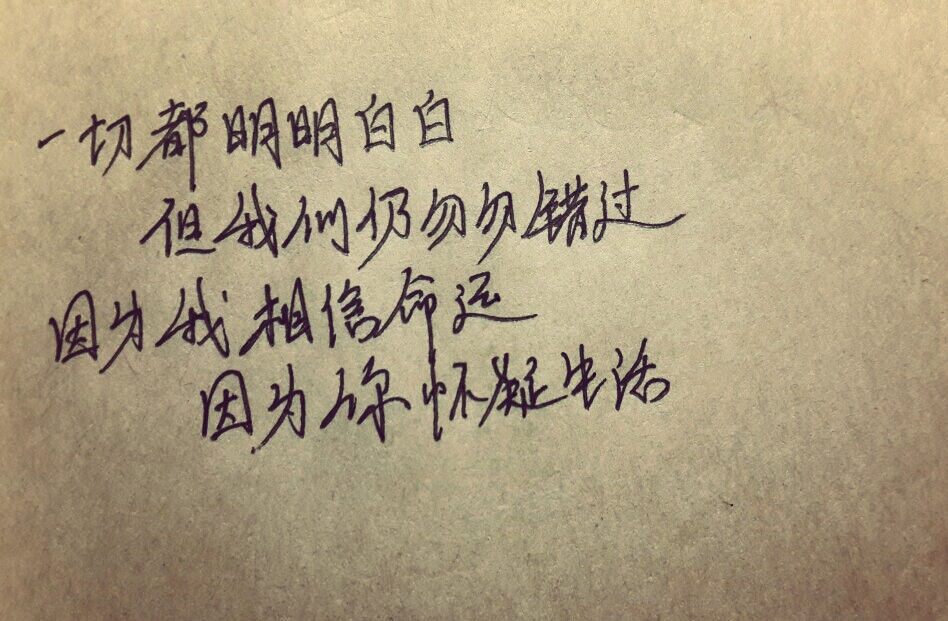 一切都明明白白
但我们仍匆匆错过
因为我相信命运
因为你怀疑生活